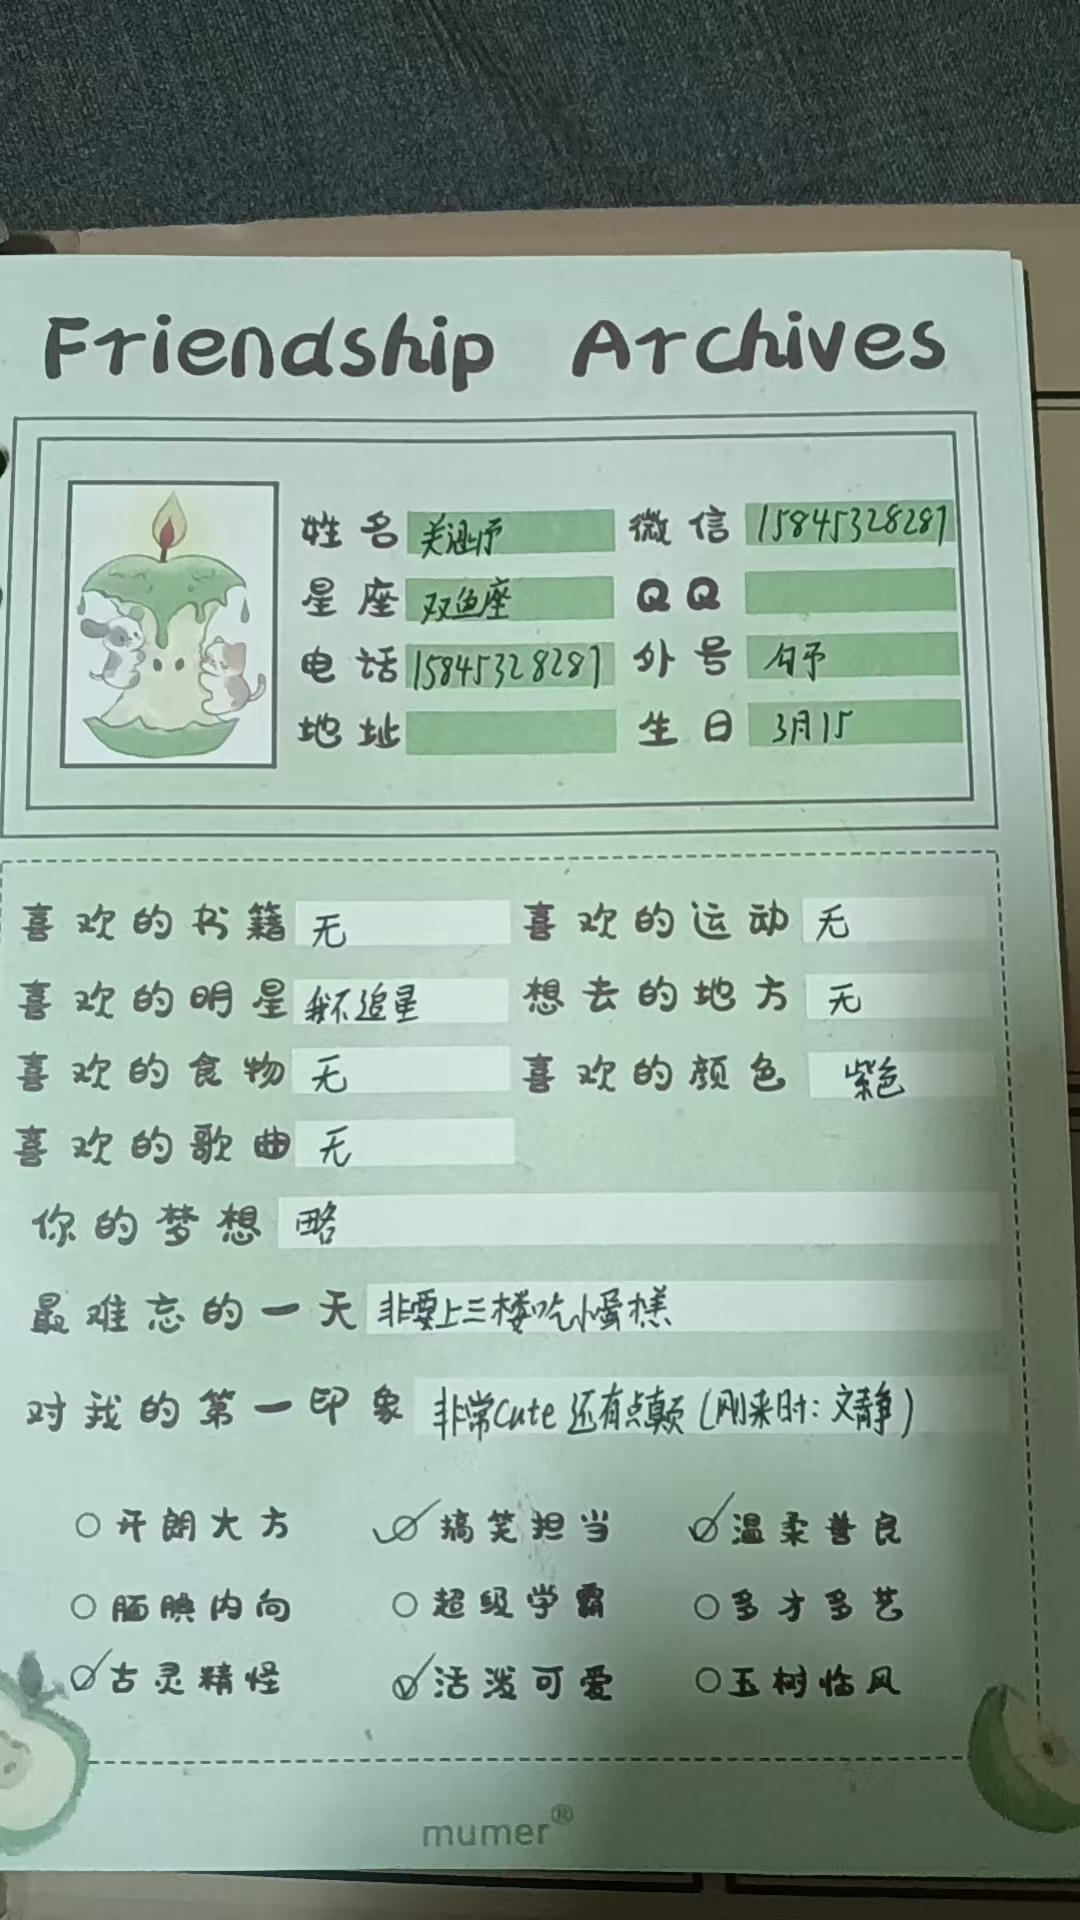 Friendship Archives
姓名 关涵予 微信 15845328287
星座 双鱼座 QQ
电话 15845328287 外号
地址 生日 3月15
喜欢的书籍 无 喜欢的运动 无
喜欢的明星 我不追星 想去的地方 无
喜欢的食物 无 喜欢的颜色 紫色
喜欢的歌曲 无
你的梦想 略
最难忘的一天 非要上三楼吃小蛋糕
对我的第一印象 非常Cute 还有点颠(刚来时:文静)
开朗大方 搞笑担当 温柔善良
腼腆内向 超级学霸 多才多艺
古灵精怪 活泼可爱 玉树临风
mumer®